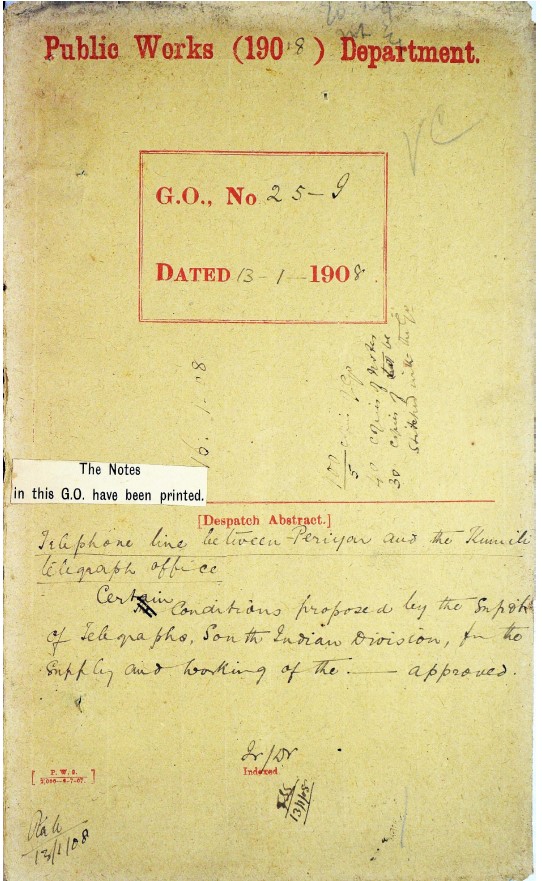 Public Works (1908) Department.
VC
G.O., No 25-9
DATED 13-1-1908.
16.1.08
40 copies of Notes
30 copies of be
stitched with the Go
The Notes
in this G.O. have been printed.
[Despatch Abstract.]
Telephone line between Periyar and the Kumili
telegraph office
Certain Conditions proposed by the Supdt
of Telegraphs, South Indian Division, for the
Supply and working of the — approved.
P. W. S.
Indexed.
13/1/08
13/1/08